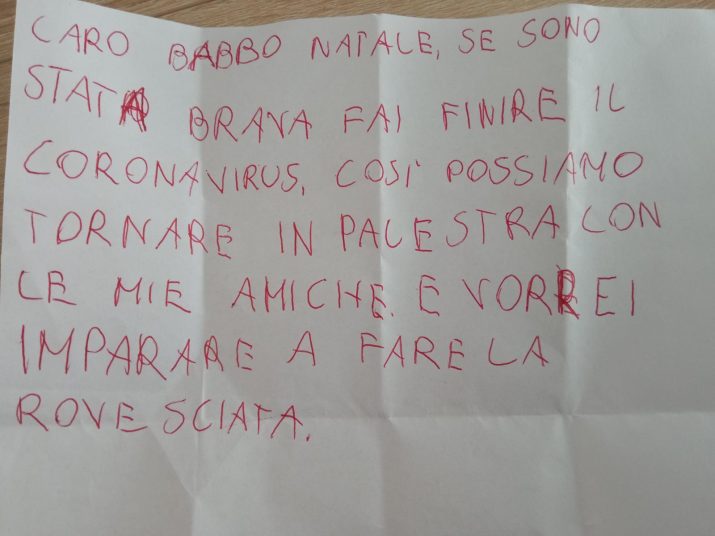 CARO BABBO NATALE, SE SONO
STATA BRAVA FAI FINIRE IL
CORONAVIRUS, COSÌ POSSIAMO
TORNARE IN PALESTRA CON
LE MIE AMICHE. E VORREI
IMPARARE A FARE LA
ROVESCIATA.